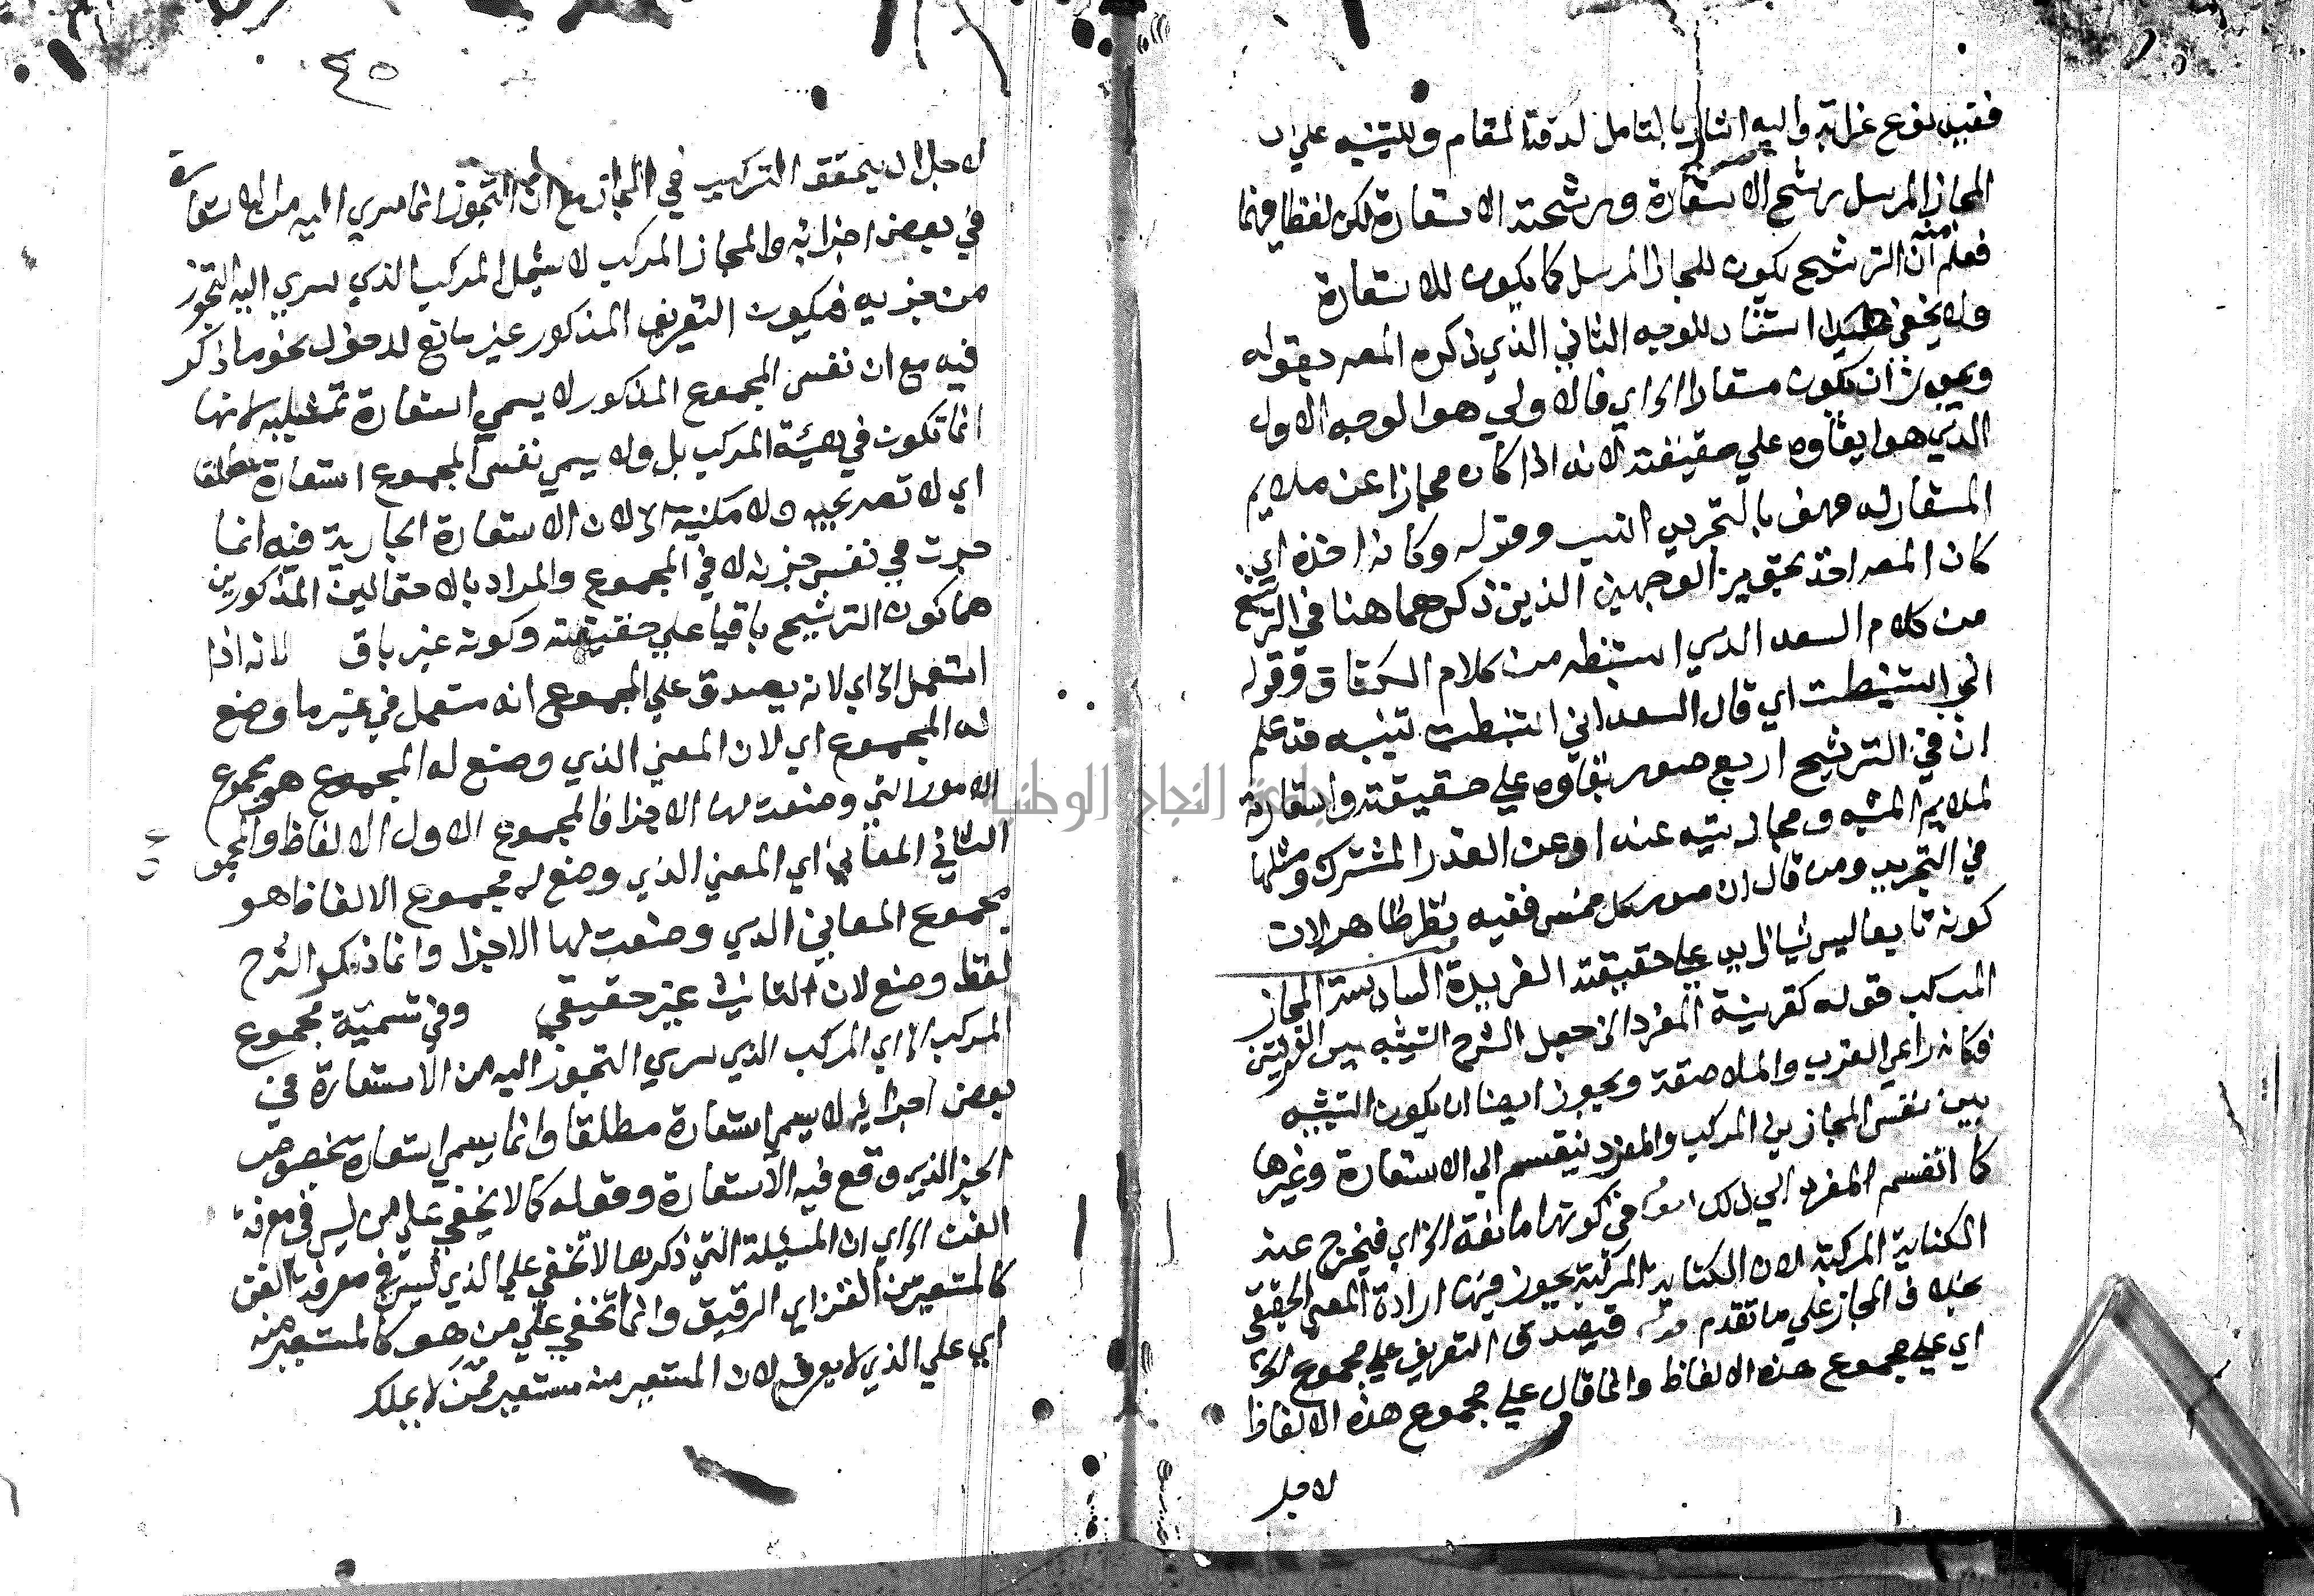 ففيه نوع غرابة واليه اشار بالتامل لدقة المقام وللتنبيه علي ان
المجاز المرسل يرشح الاستعارة ومرشحته الاستعارة لكن لفظا فيهما
فعلم منه ان الترشيح يكون للمجاز المرسل كما يكون للاستعارة
ولا يخفي استثنا للوجه الثاني الذي ذكره المص بقوله
ويجوز ان يكون مستعارا الخ اي فالاولي هو الوجه الاول
الذي هو ابقاوه علي حقيقته لانه اذا كان مجازا عن ملايم
المستعار له فهو بالتجريد انسب وقوله وكانه اخذه اي
كان المص اخذ تجويز الوجهين الذين ذكرهما هنا في الترشيح
من كلام السعد الذي استنبطه من كلام الكشاف وقوله
اني استنبطت اي قال السعد اني استنبطت تنبيه قد علم
ان في الترشيح اربع صور بقاوه علي حقيقته واستعارة
لملايم المشبه ومجازيته عنه او عن القدر المشترك ومثلها
في التجريد ومن قال ان صور كل خمس ففيه نظر ظاهر لان
كونه تابعا ليس شيا زايد علي حقيقته الفريدة السادسة المجاز
المركب قوله كقرينة المفرد الخ جعل الشرح التشبيه بين القرينتين
فكانه راعي القرب والملاصقة ويجوز ايضا ان يكون التشبيه
بين نفس المجازين المركب والمفرد فينقسم الي الاستعارة وغيرها
كما انقسم المفرد الي ذلك قوله في كونها مانعة الخ اي فيخرج عنه
الكناية المركبة لان الكناية المركبة يجوز فيها ارادة المعني الحقيقي
بخلاف المجاز علي ما تقدم قوله فيصدق التعريف علي مجموع الخ
اي علي مجموع هذه الالفاظ وانما قال علي مجموع هذه الالفاظ
لاجل
٤٥
لاجل ان يتحقق التركيب في المجاز مع ان التجوز انما سري اليه من الاستعارة
في بعض اجزايه والمجاز المركب لا يشمل المركب الذي سري اليه التجوز
من جزيه فيكون التعريف المذكور غير مانع لدخول نحو ما ذكر
فيه مع ان نفس المجموع المذكور لا يسمي استعارة تمثيلية لانها
انما تكون في هيئة المركب بل ولا يسمي نفس المجموع استعارة مطلقا
اي لا تصريحيه ولا مكنية الخ لان الاستعارة الجارية فيه انما
جرت في نفس جزيه لا في المجموع والمراد بالاحتمالين المذكورين
هما كون الترشيح باقيا علي حقيقته وكونه غير باق لانه اذا
استعمل الخ اي لانه يصدق علي المجموع انه مستعمل في غير ما وضع
له المجموع اي لان المعني الذي وضع له المجموع هو مجموع
الامور التي وضعت لها الاجزا فالمجموع الاول الالفاظ والمجموع
الثاني المعاني اي المعني الذي وضع له مجموع الالفاظ هو
مجموع المعاني الذي وضعت لها الاجزا وانما ذكر الشرح
لفظ وضع لان التانيث غير حقيقي وفي تسمية مجموع
المركب الخ اي المركب الذي سري التجوز اليه من الاستعارة في
بعض اجزايه لا يسمي استعارة مطلقا وانما يسمي استعارة بخصوص
الجزء الذي وقع فيه الاستعارة وقوله كما لا يخفي علي من ليس في معرفة
الفن الخ اي ان المسئلة التي ذكرها لا تخفي علي الذي ليس في معرفة الفن
كالمستعير من الفن اي الرقيق وانما تخفي علي من هو كالمستعير منه
اي علي الذي لا يعرف لان المستعير منه مستعير ممن لا يملك
جامعة النجاح الوطنية